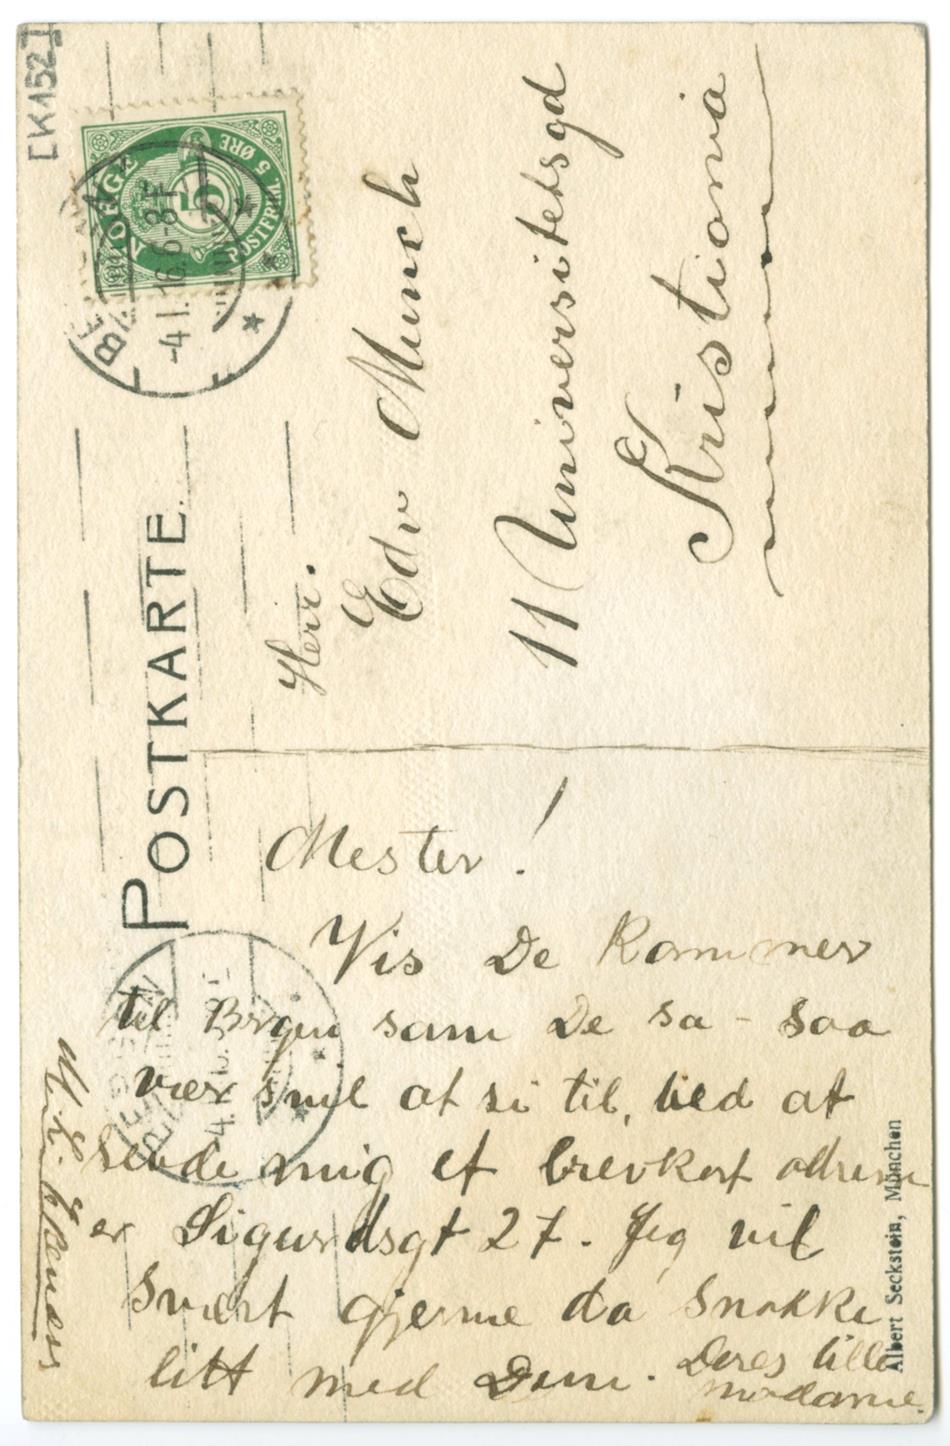 [K152]
NORGE
5
POSTFRIM. 5 ØRE
BERGEN
-4.I.16.6-8F
POSTKARTE.
Herr.
Edv Munch
11 Universitetsgd
Kristiania
Mester!
Vis De kommer
til Brgen som De sa - saa
vær snil at si til, ved at
sende mig et brevkort adressen
er Sigurdsgt 27. Jeg vil
svært gjerne da snakke
litt med Dem. Deres lille
madame.
Albert Seckstein, München